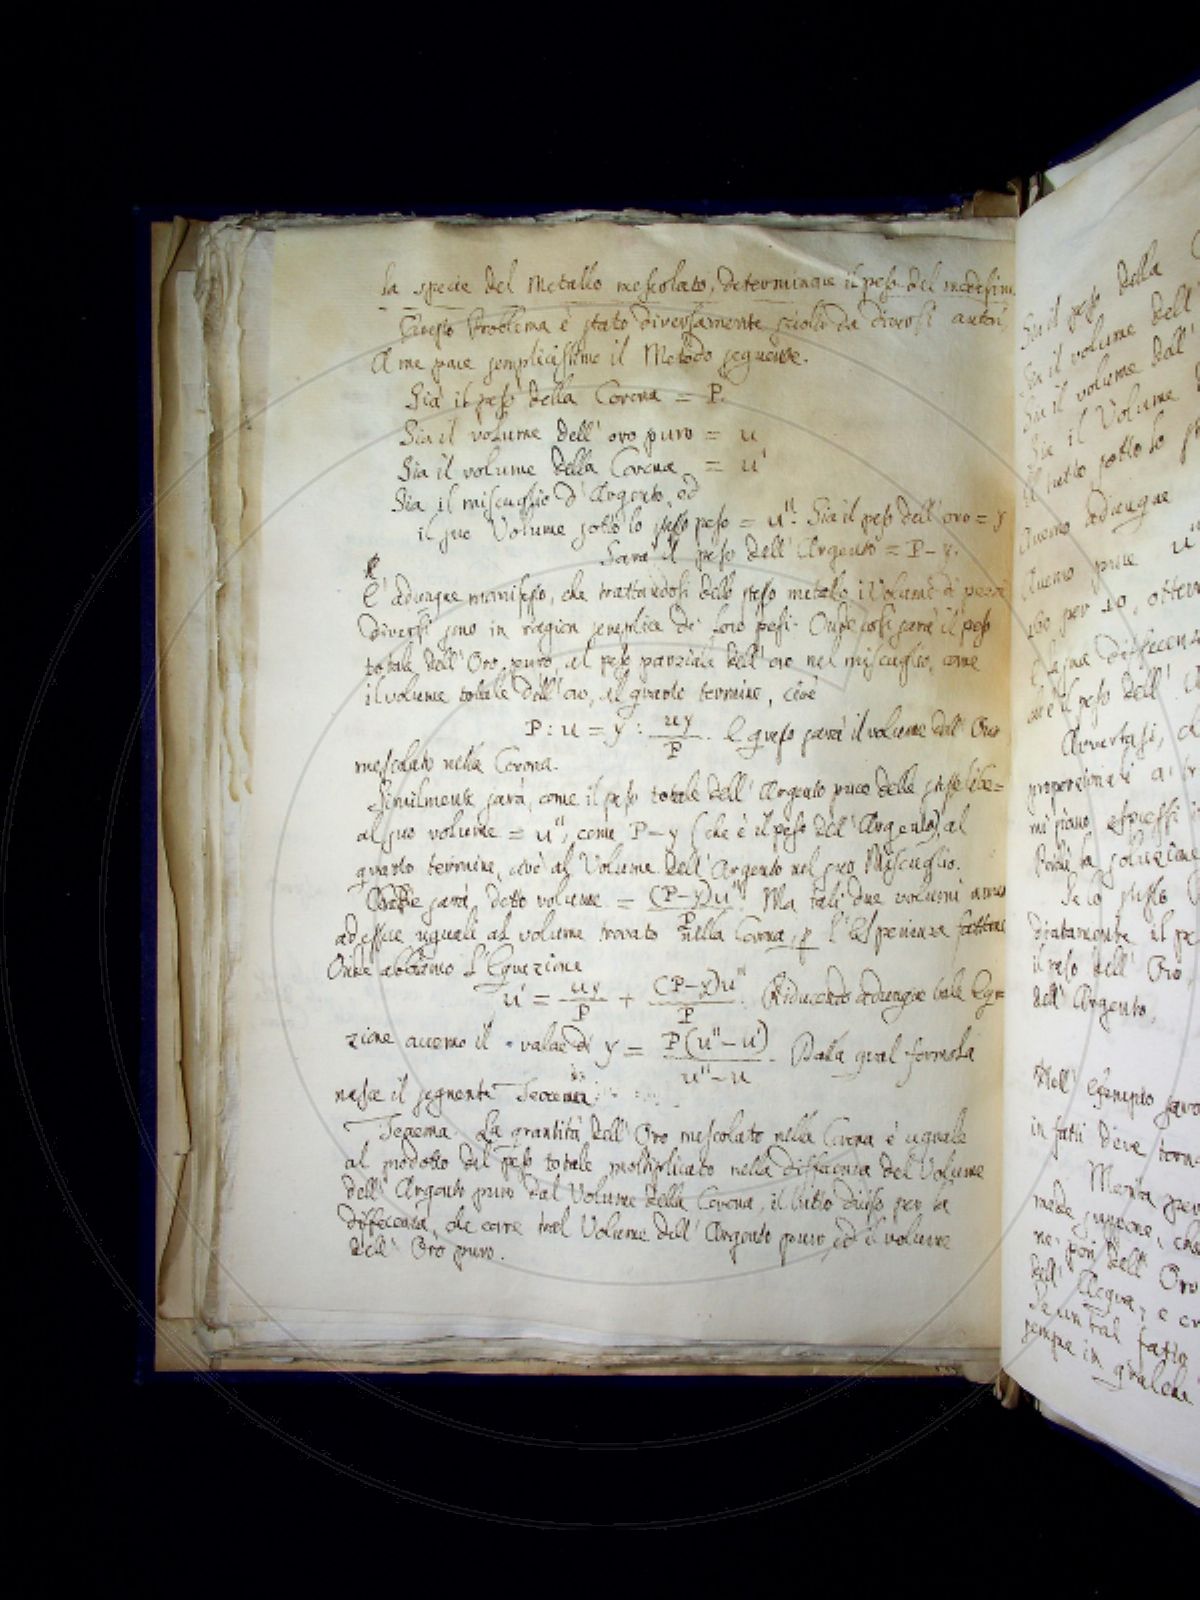 la specie del Metallo mescolato, determinare il peso del medesimo.
Questo Problema è stato diversamente sciolto da diversi autori,
A me pare semplicissimo il Metodo seguente.
Sia il peso della Corona = P.
Sia il volume dell' oro puro = u
Sia il volume della Corona = u'
Sia il miscuglio d' Argento, ed
il suo Volume sotto lo stesso peso = u". Sia il peso dell' oro = y
Sarà il peso dell' Argento = P - y.
E' adunque manifesto, che trattandosi dello stesso metallo i Volumi di pezzi
diversi sono in ragion semplice de' loro pesi. Onde così sarà il peso
totale dell' Oro puro, al peso parziale dell' oro nel miscuglio, come
il volume totale dell' oro, al quarto termine, cioè
P : u = y : uy/P. E questo sarà il volume dell' Oro
mescolato nella Corona.
Similmente sarà, come il peso totale dell' Argento puro delle stesse libe=
al suo volume = u", come P - y (che è il peso dell' Argento) al
quarto termine, cioè al Volume dell' Argento nel suo Miscuglio.
sarà, detto volume = (P-y)u"/P. Ma tali due volumi anno
ad essere uguali al volume trovato nella Corona, p l' Esperienza fattane
Onde abbiamo l' Equazione
u' = uy/P + (P-y)u"/P. Riducendo adunque tale Equa=
zione avemo il valor di y = P(u"-u')/u"-u. Dalla qual formola
nasce il seguente Teorema
Teorema. La quantità dell' Oro mescolato nella Corona è uguale
al prodotto del peso totale moltiplicato nella differenza del Volume
dell' Argento puro dal Volume della Corona, il tutto diviso per la
differenza, che corre tral Volume dell' Argento puro ed il volume
dell' Oro puro.
Sia il peso della
Sia il volume dell'
Sia il volume dell'
Sia il Volume
il tutto sotto lo
Avemo adunque
Avemo pure u
160 per 10, otter
differenza
il peso dell'
Avvertasi, c
proporzionali a
mi siano espressi
Perchè la soluzione
Se lo stesso
diatamente il pe
il peso dell' Oro
dell' Argento,
Nell' Esempio
infatti deve torn
Manca
made suppone, che
ne poi dell' Oro
dell' Acqua, e
Se un tal fatto
sempre in qualche